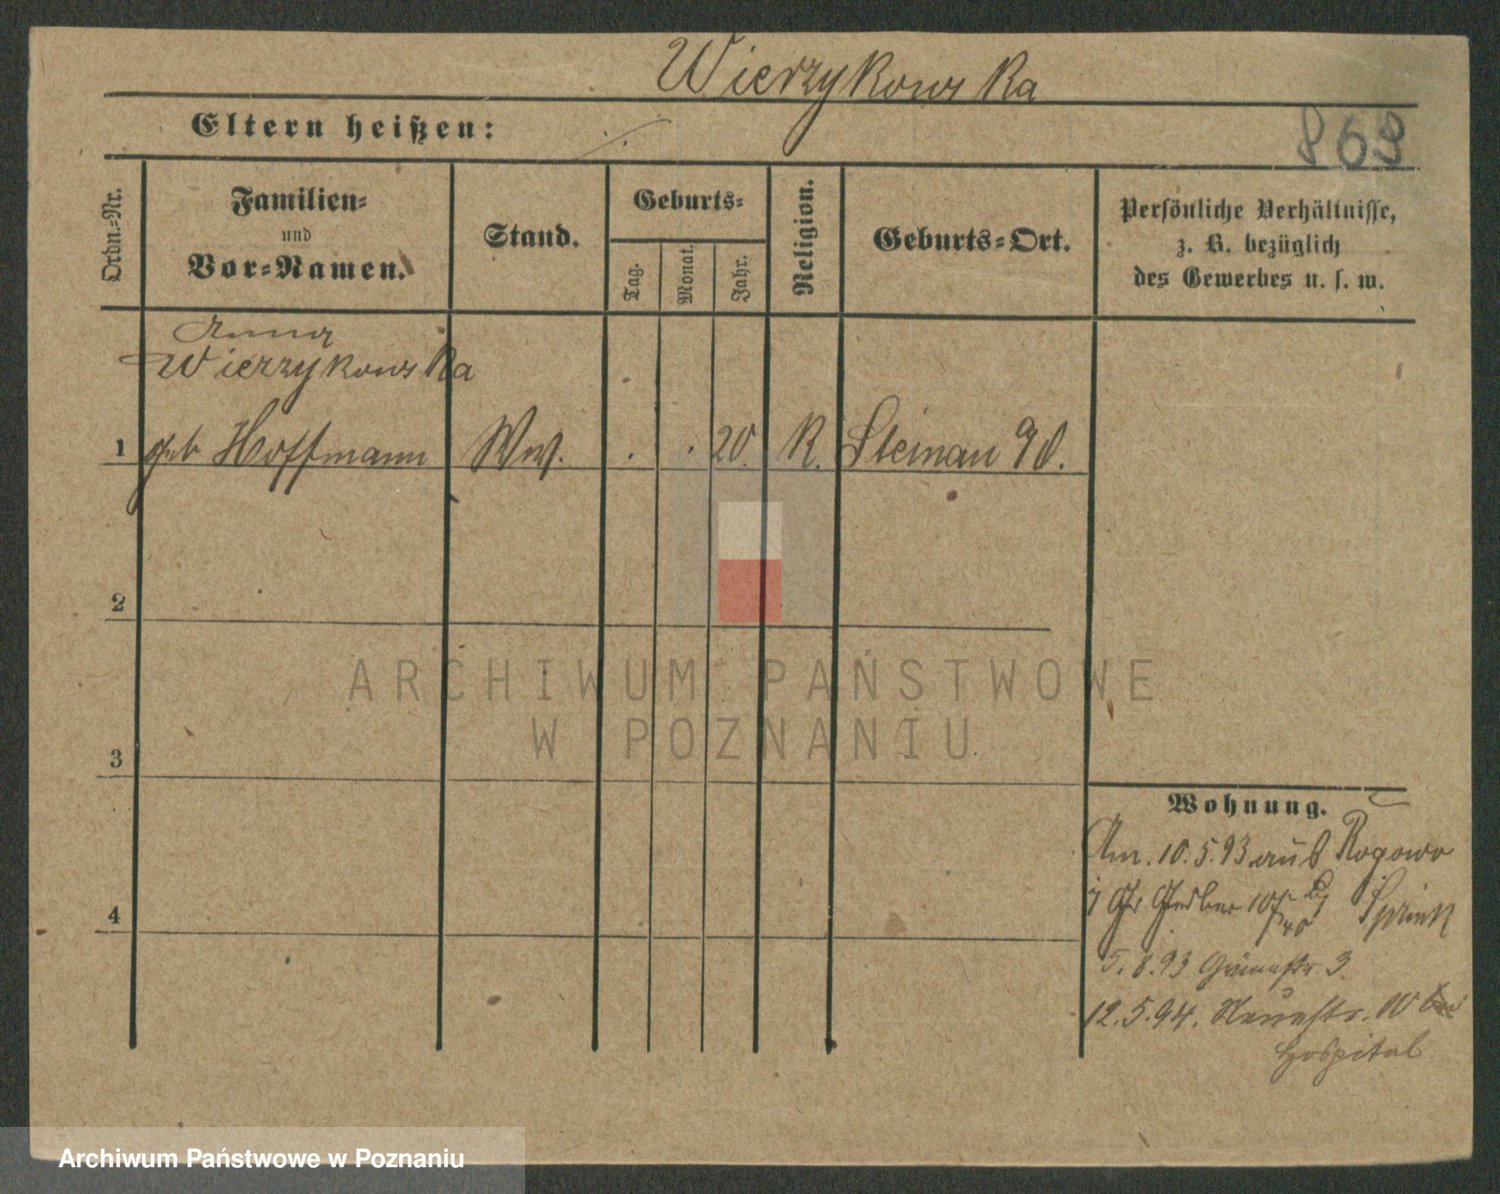 Wierzykowska
Eltern heißen:
869
Ordn.=Nr.
Familien=
und
Vor=Namen.
Stand.
Geburts=
Tag.
Monat.
Jahr.
Religion.
Geburts=Ort.
Persönliche Verhältnisse,
z. B. bezüglich
des Gewerbes u. s. w.
Anna
Wierzykowska
1 geb Hoffmann Ww. . . 20. K. Steinau
2
ARCHIWUM PAŃSTWOWE
W POZNANIU
3
Wohnung.
Am. 10.5.93 aus Rogowo
Gr Gerber
4
5.8.93 Grünestr. 3.
12.5.94. Neuestr. 10
Hospital
Archiwum Państwowe w Poznaniu